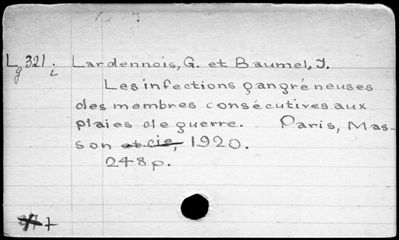 Lg 321. i Lardennois, G. et Baumel, J.
Les infections gangréneuses
des membres consécutives aux
plaies de guerre. Paris, Mas-
son et cie, 1920.
248p.